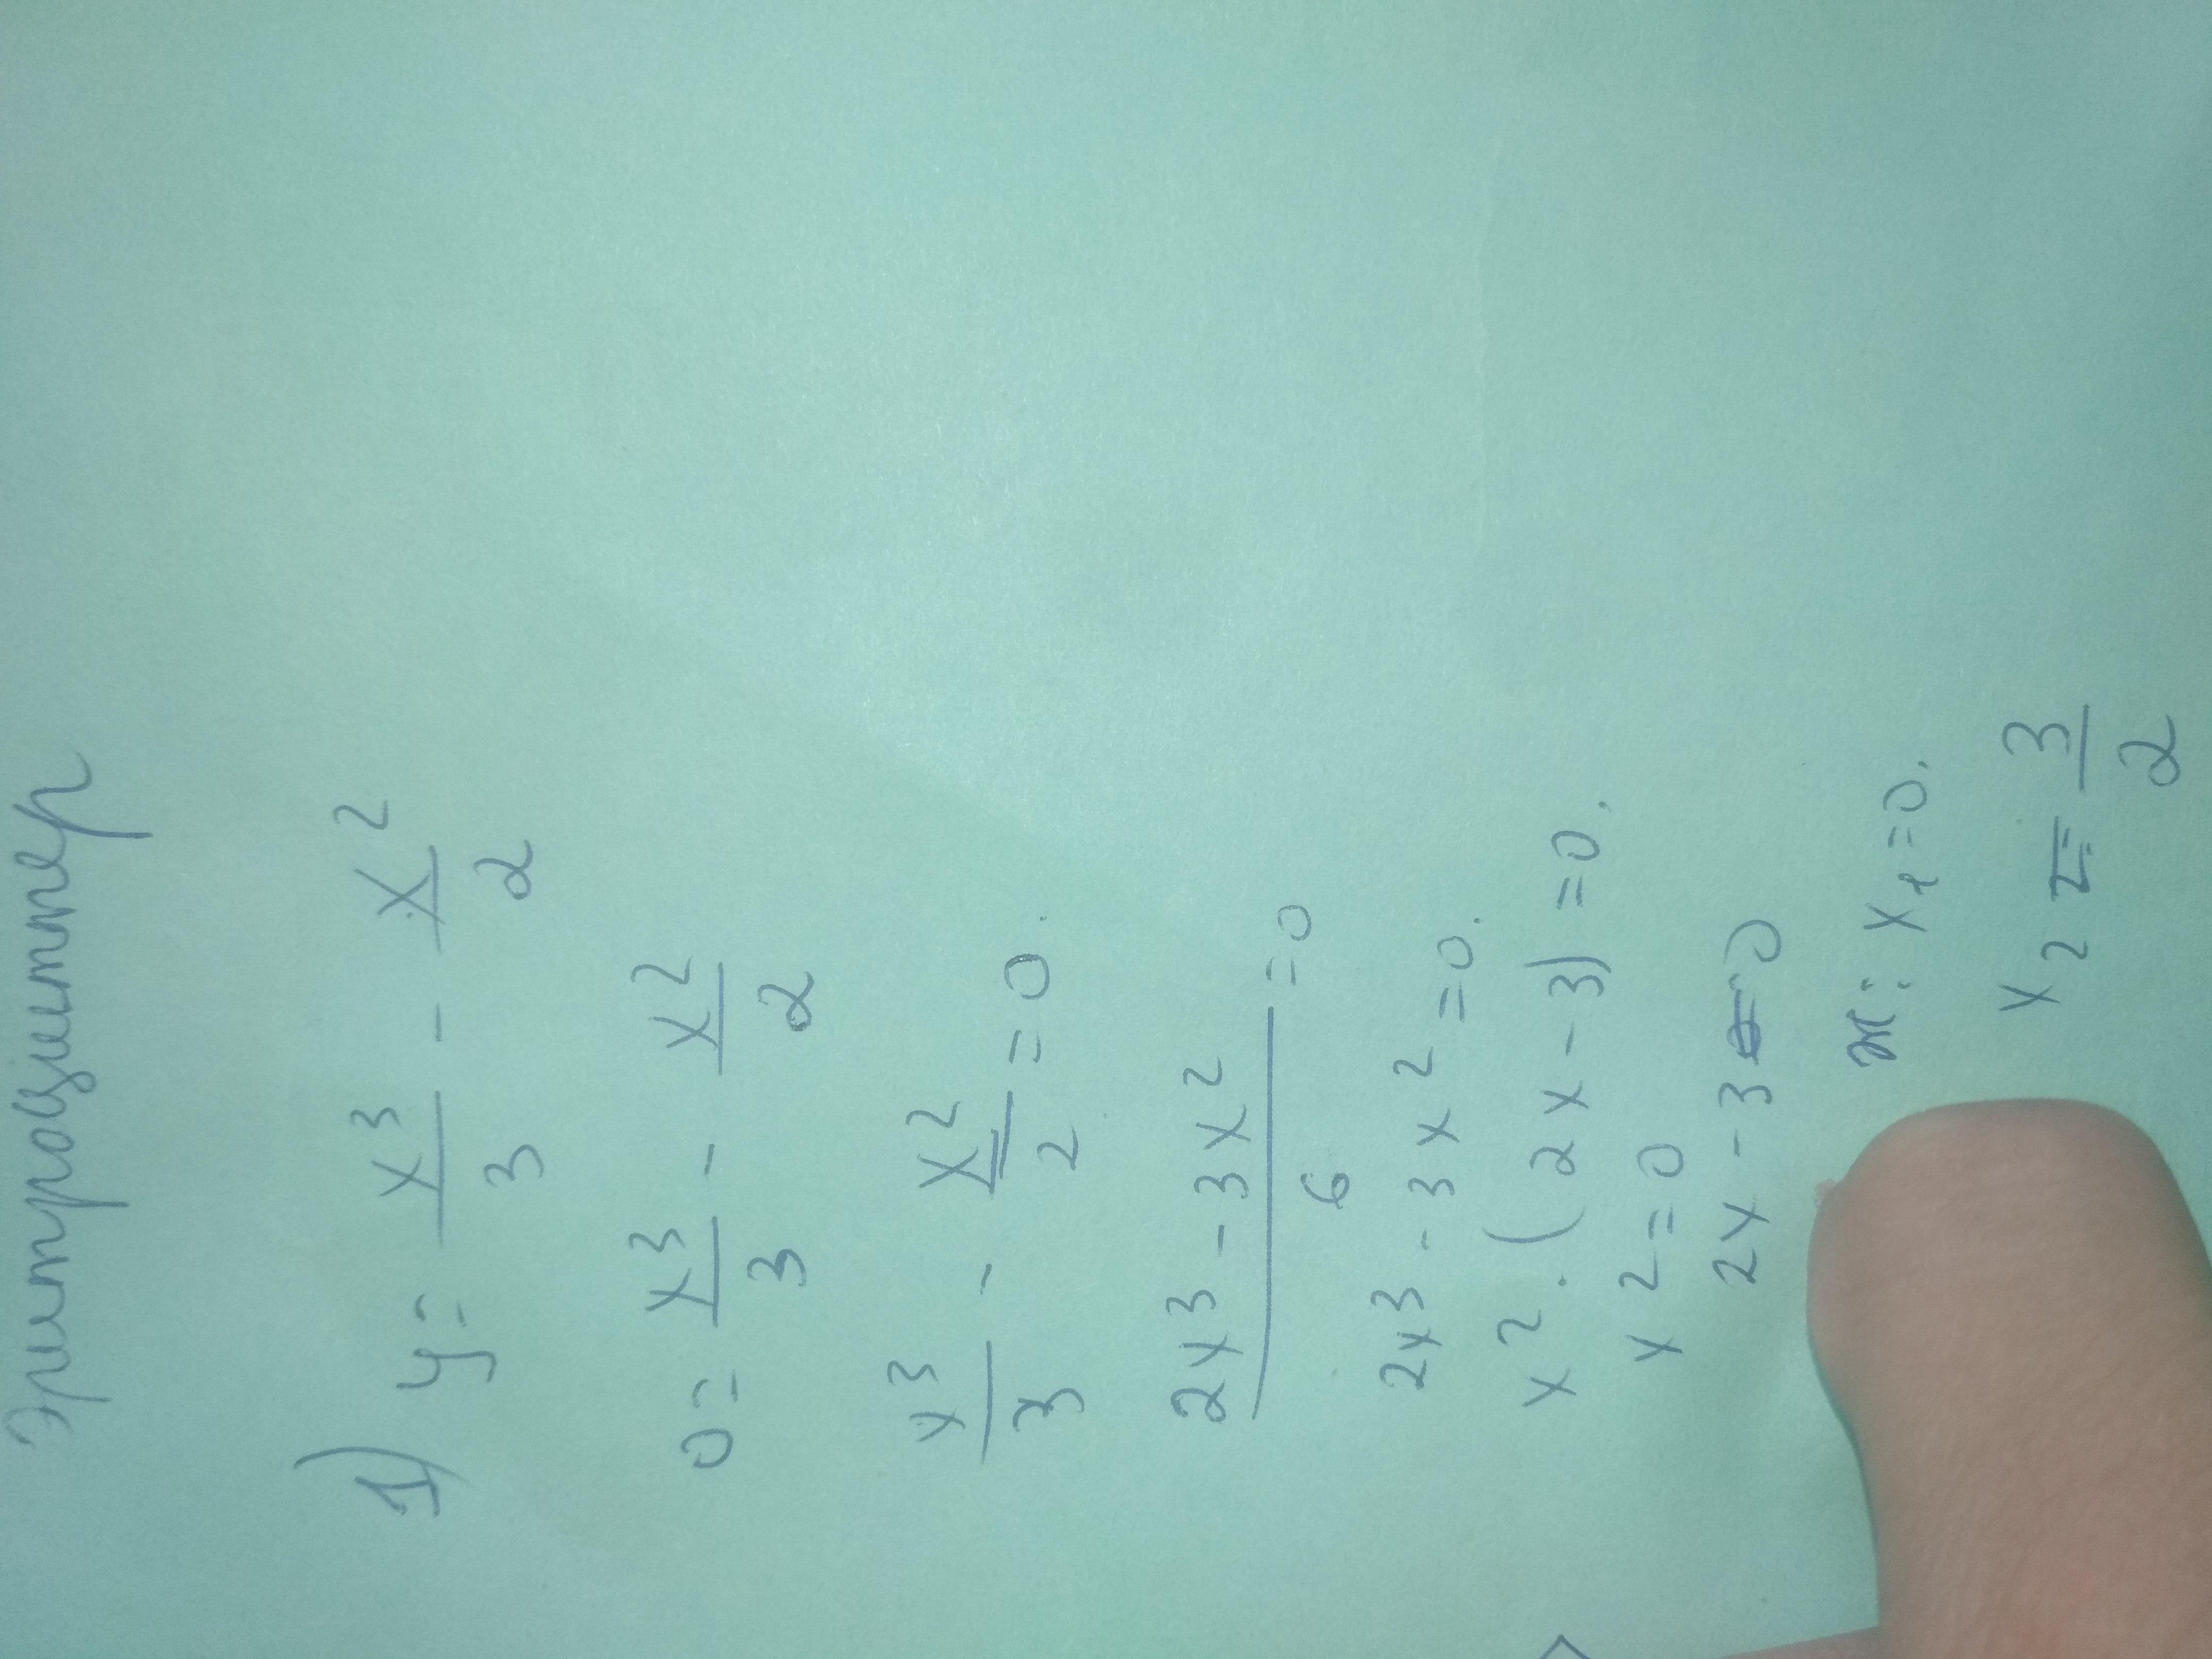 Экстремумдер
1) y = x³/3 - x²/2
0 = x³/3 - x²/2
x³/3 - x²/2 = 0.
(2x³ - 3x²)/6 = 0
2x³ - 3x² = 0.
x² · (2x - 3) = 0.
x² = 0
2x - 3 = 0
ж: x₁ = 0.
x₂ = 3/2